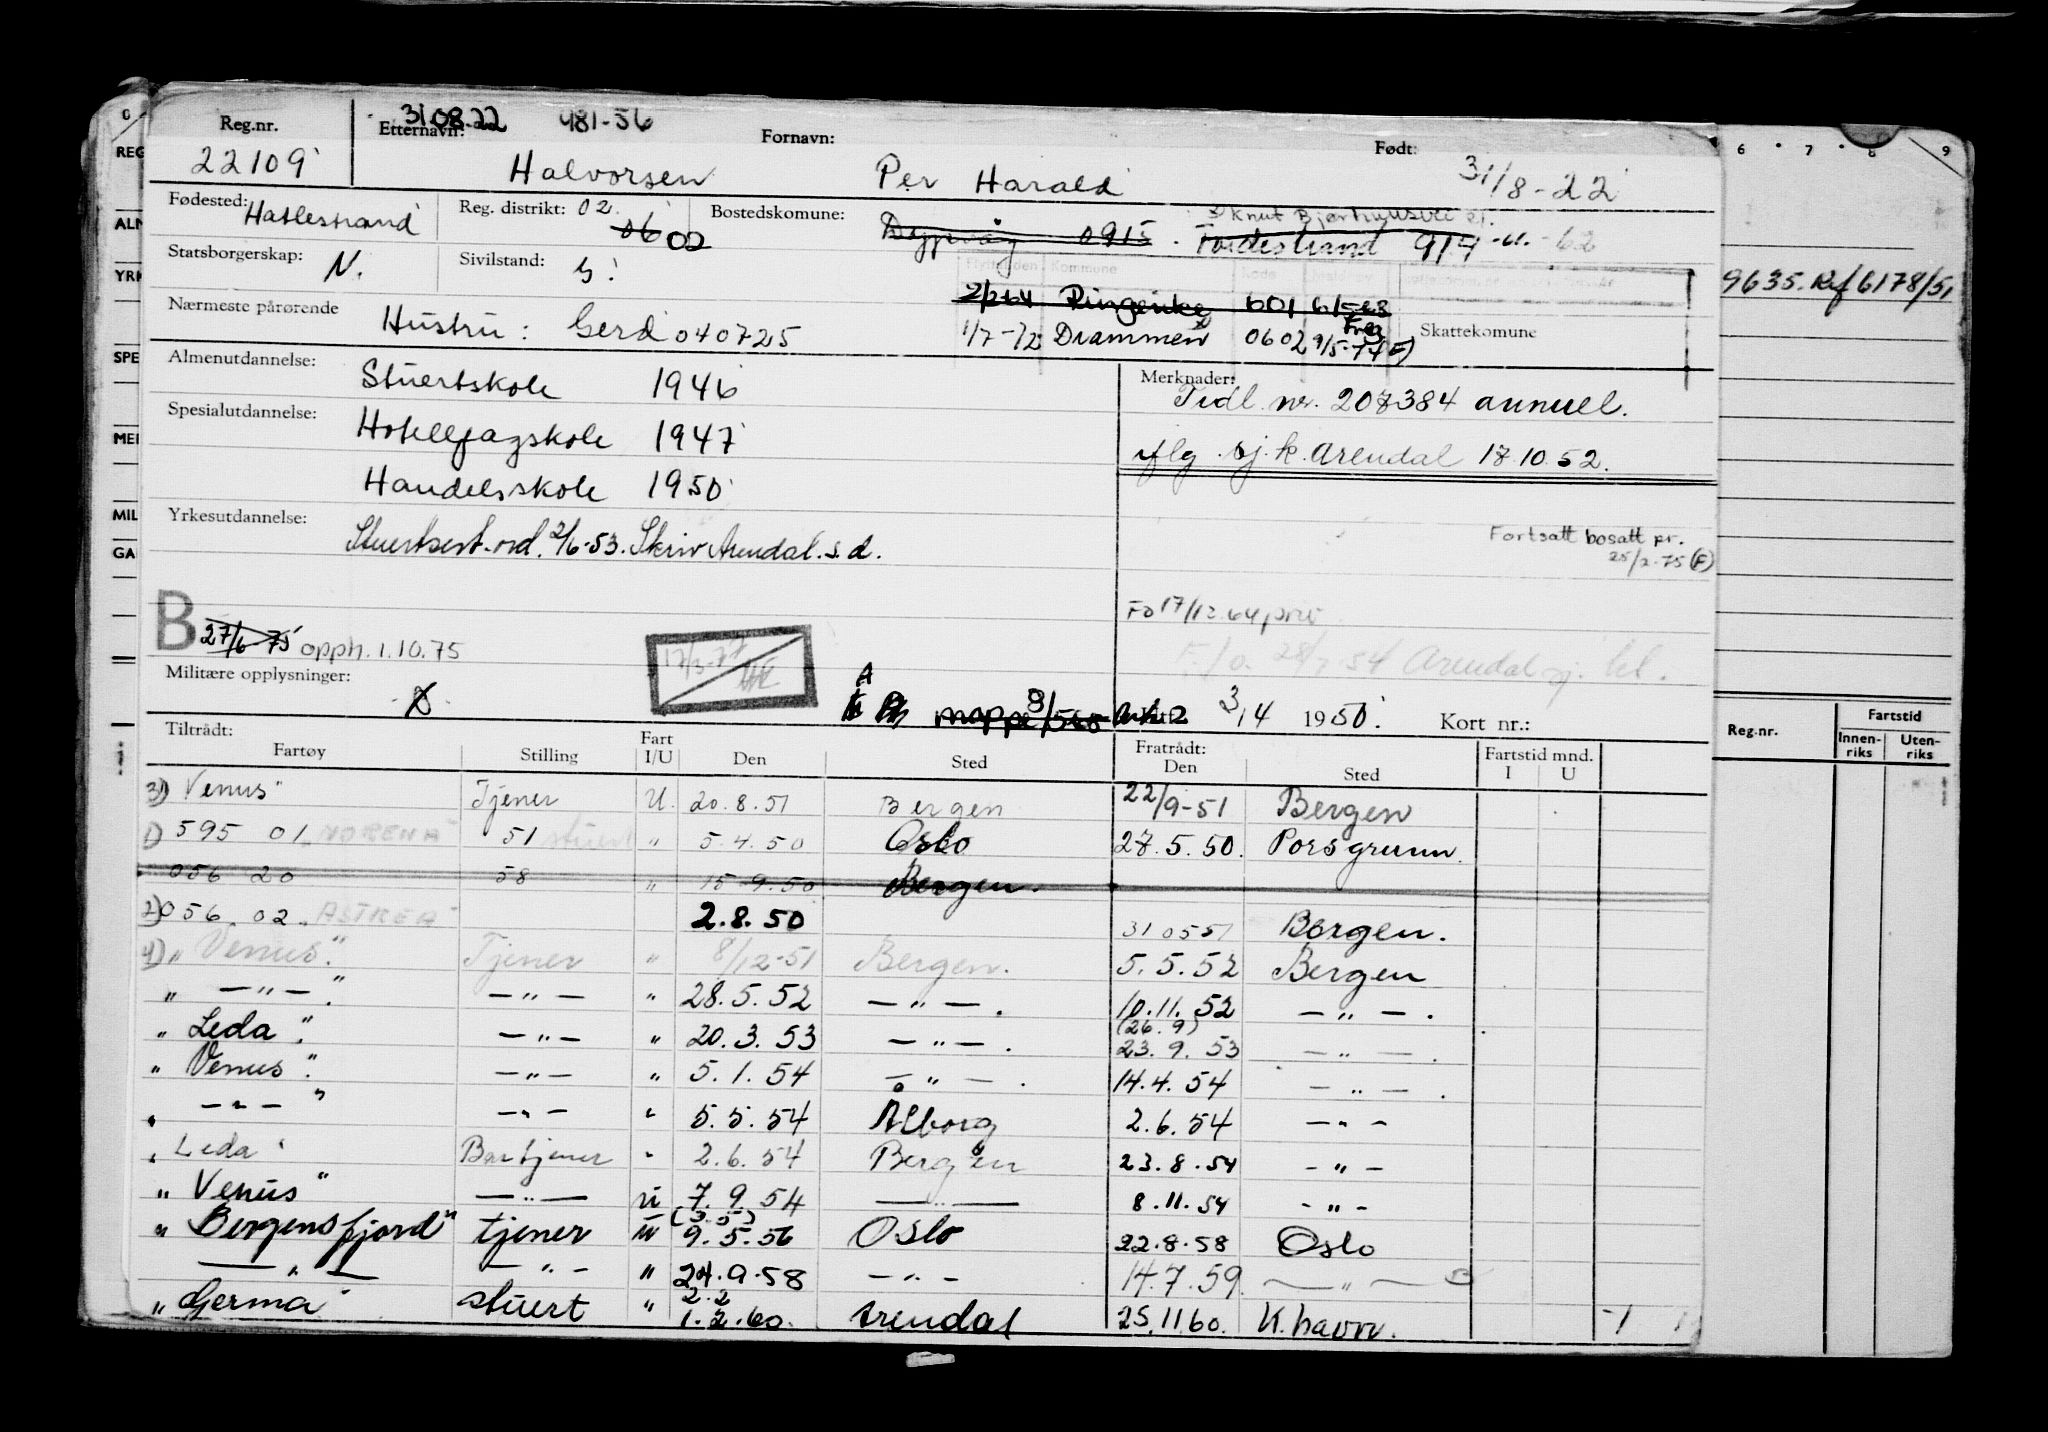 31.08.22 481-56
Reg.nr. Etternavn: Fornavn: Født:
22109 Halvorsen Per Harald 31/8-22
Fødested: Hatlestrand Reg. distrikt: 02. 06 02 Bostedskomune: 0915
Statsborgerskap: N. Sivilstand: G.
Kommune
2/2-64 Ringerike 601
Nærmeste pårørende Hustru: Gerd 040725 1/7-72 Drammen 0602 9/5-74 Skattekomune
Almenutdannelse: Stuertskole 1946
Merknader:
Tidl. nr. 207384 annuel.
Spesialutdannelse: Hotellfagskole 1947
iflg. sj.k. Arendal 17.10.52.
Handelsskole 1950
Yrkesutdannelse: Stuertsert. ord. 2/6-53. Skriv Arendal s.d.
Fortsatt bosatt pr.
25/2-75 (F)
Fo 17/12.64 priv
B 27/6 75 opph. 1.10.75
17/3-77
28/7-54 Arendal sj.
Militære opplysninger:
A
mappe 3/4 1950. Kort nr.:
Tiltrådt: Fratrådt:
Fartøy Stilling Fart I/U Den Sted Den Sted Fartstid mnd. I U
3) Venus" Tjener U. 20.8.51 Bergen 22/9-51 Bergen
1) 595 01 "NORENA" 51 stuert " 5.4.50 Oslo 27.5.50. Porsgrunn
056 20 58 " 15 9.50 Bergen.
2) 056.02. "ASTREA" 2.8.50 310551 Bergen.
4) " Venus". Tjener " 8/12-51 Bergen. 5.5.52 Bergen
" — " — ". — " — " 28.5.52 — " — . 10.11.52 — " — .
" Leda ". — " — " 20.3.53 — " — . (26.9) 23.9.53 — " — .
" Venus ". — " — " 5.1.54 — " — . 14.4.54 — " — .
" — " — " — " — " 5.5.54 Ålborg 2.6.54 — " —
" Leda " Bartjener " 2.6.54 Bergen 23.8.54 — " —
" Venus " — " — U 7.9.54 — " — 8.11.54 — " —
" Bergensfjord" tjener U (3.5) 9.5.56 Oslo 22.8.58 Oslo
— " — — " — " 24.9.58 — " — 14.7.59. — " —
" Germa" stuert " 2.2 1.2.60. Arendal 25.11.60. K.havn.
6 7 8 9
9635. Ref 6178/51
Reg.nr. Fartstid
Innenriks Utenriks
REG
ALM
YRK
SPE
MER
MIL
GA